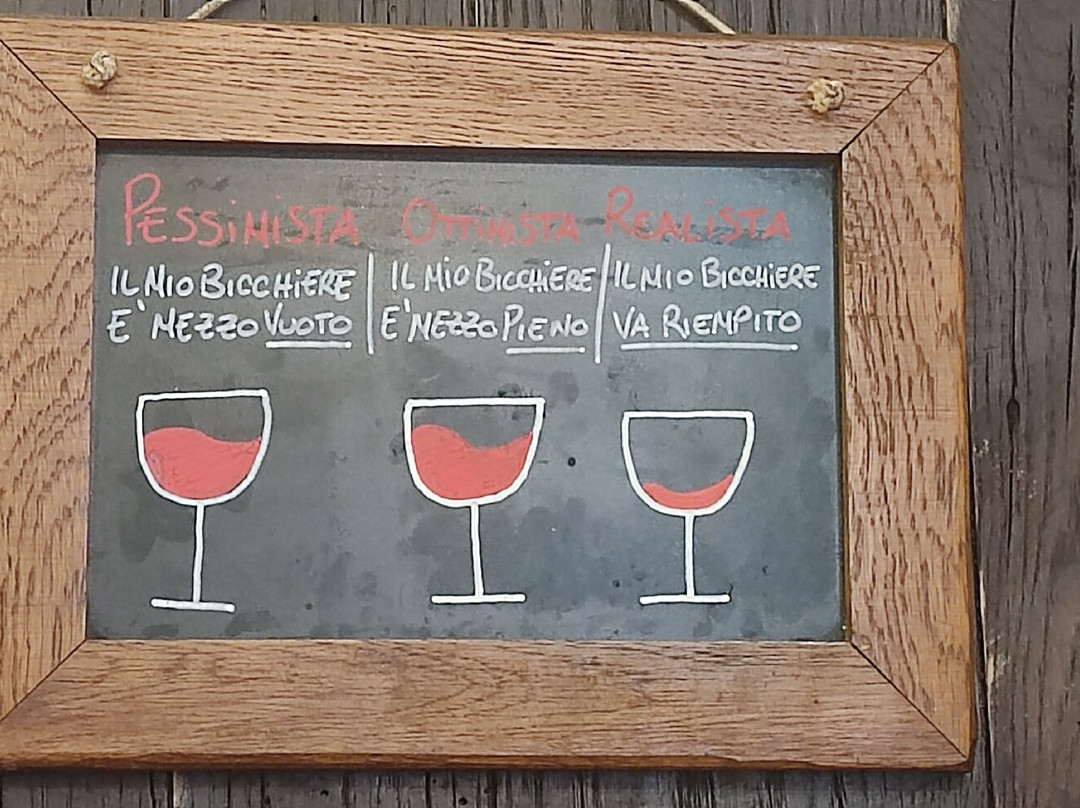 PESSIMISTA
IL MIO BICCHIERE
E' MEZZO VUOTO
OTTIMISTA
IL MIO BICCHIERE
E' MEZZO PIENO
REALISTA
IL MIO BICCHIERE
VA RIEMPITO